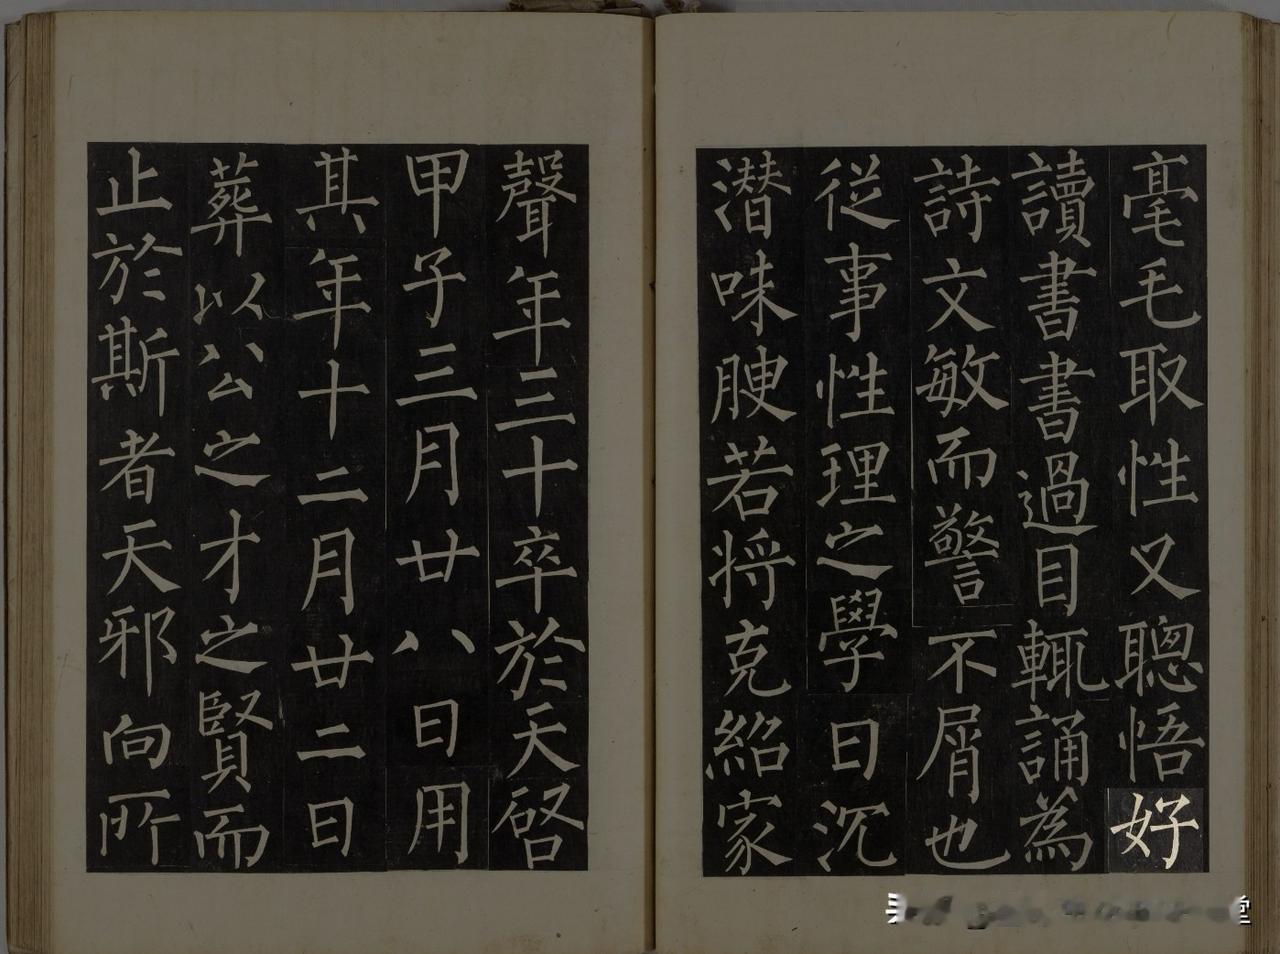 毫毛取性又聰悟好
讀書書過目輒誦為
詩文敏而警不屑也
從事性理之學日沉
潛味腴若將克紹家
聲年三十卒於天啓
甲子三月廿八日用
其年十二月廿二日
葬以公之才之賢而
止於斯者天邪向所